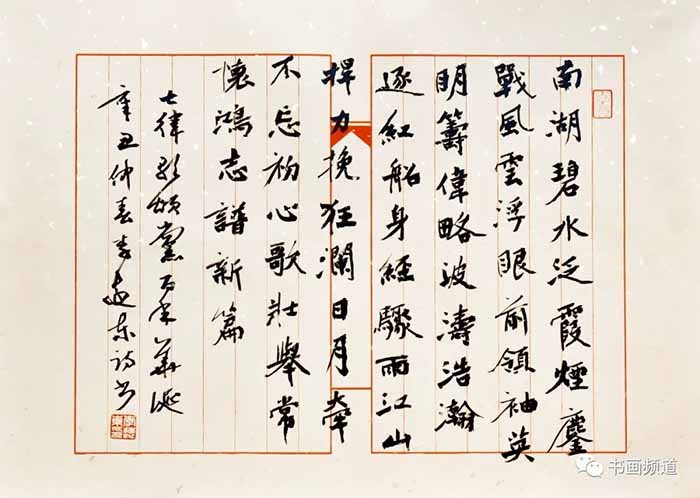 南湖碧水泛霞煙鏖
戰風雲浮眼前領袖英
明籌偉略波濤浩瀚
逐紅船身經驟雨江山
捍力挽狂瀾日月牽
不忘初心歌壯舉常
懷鴻志譜新篇
七律頌黨百年華誕
辛丑仲春李遠東詩書
书画频道